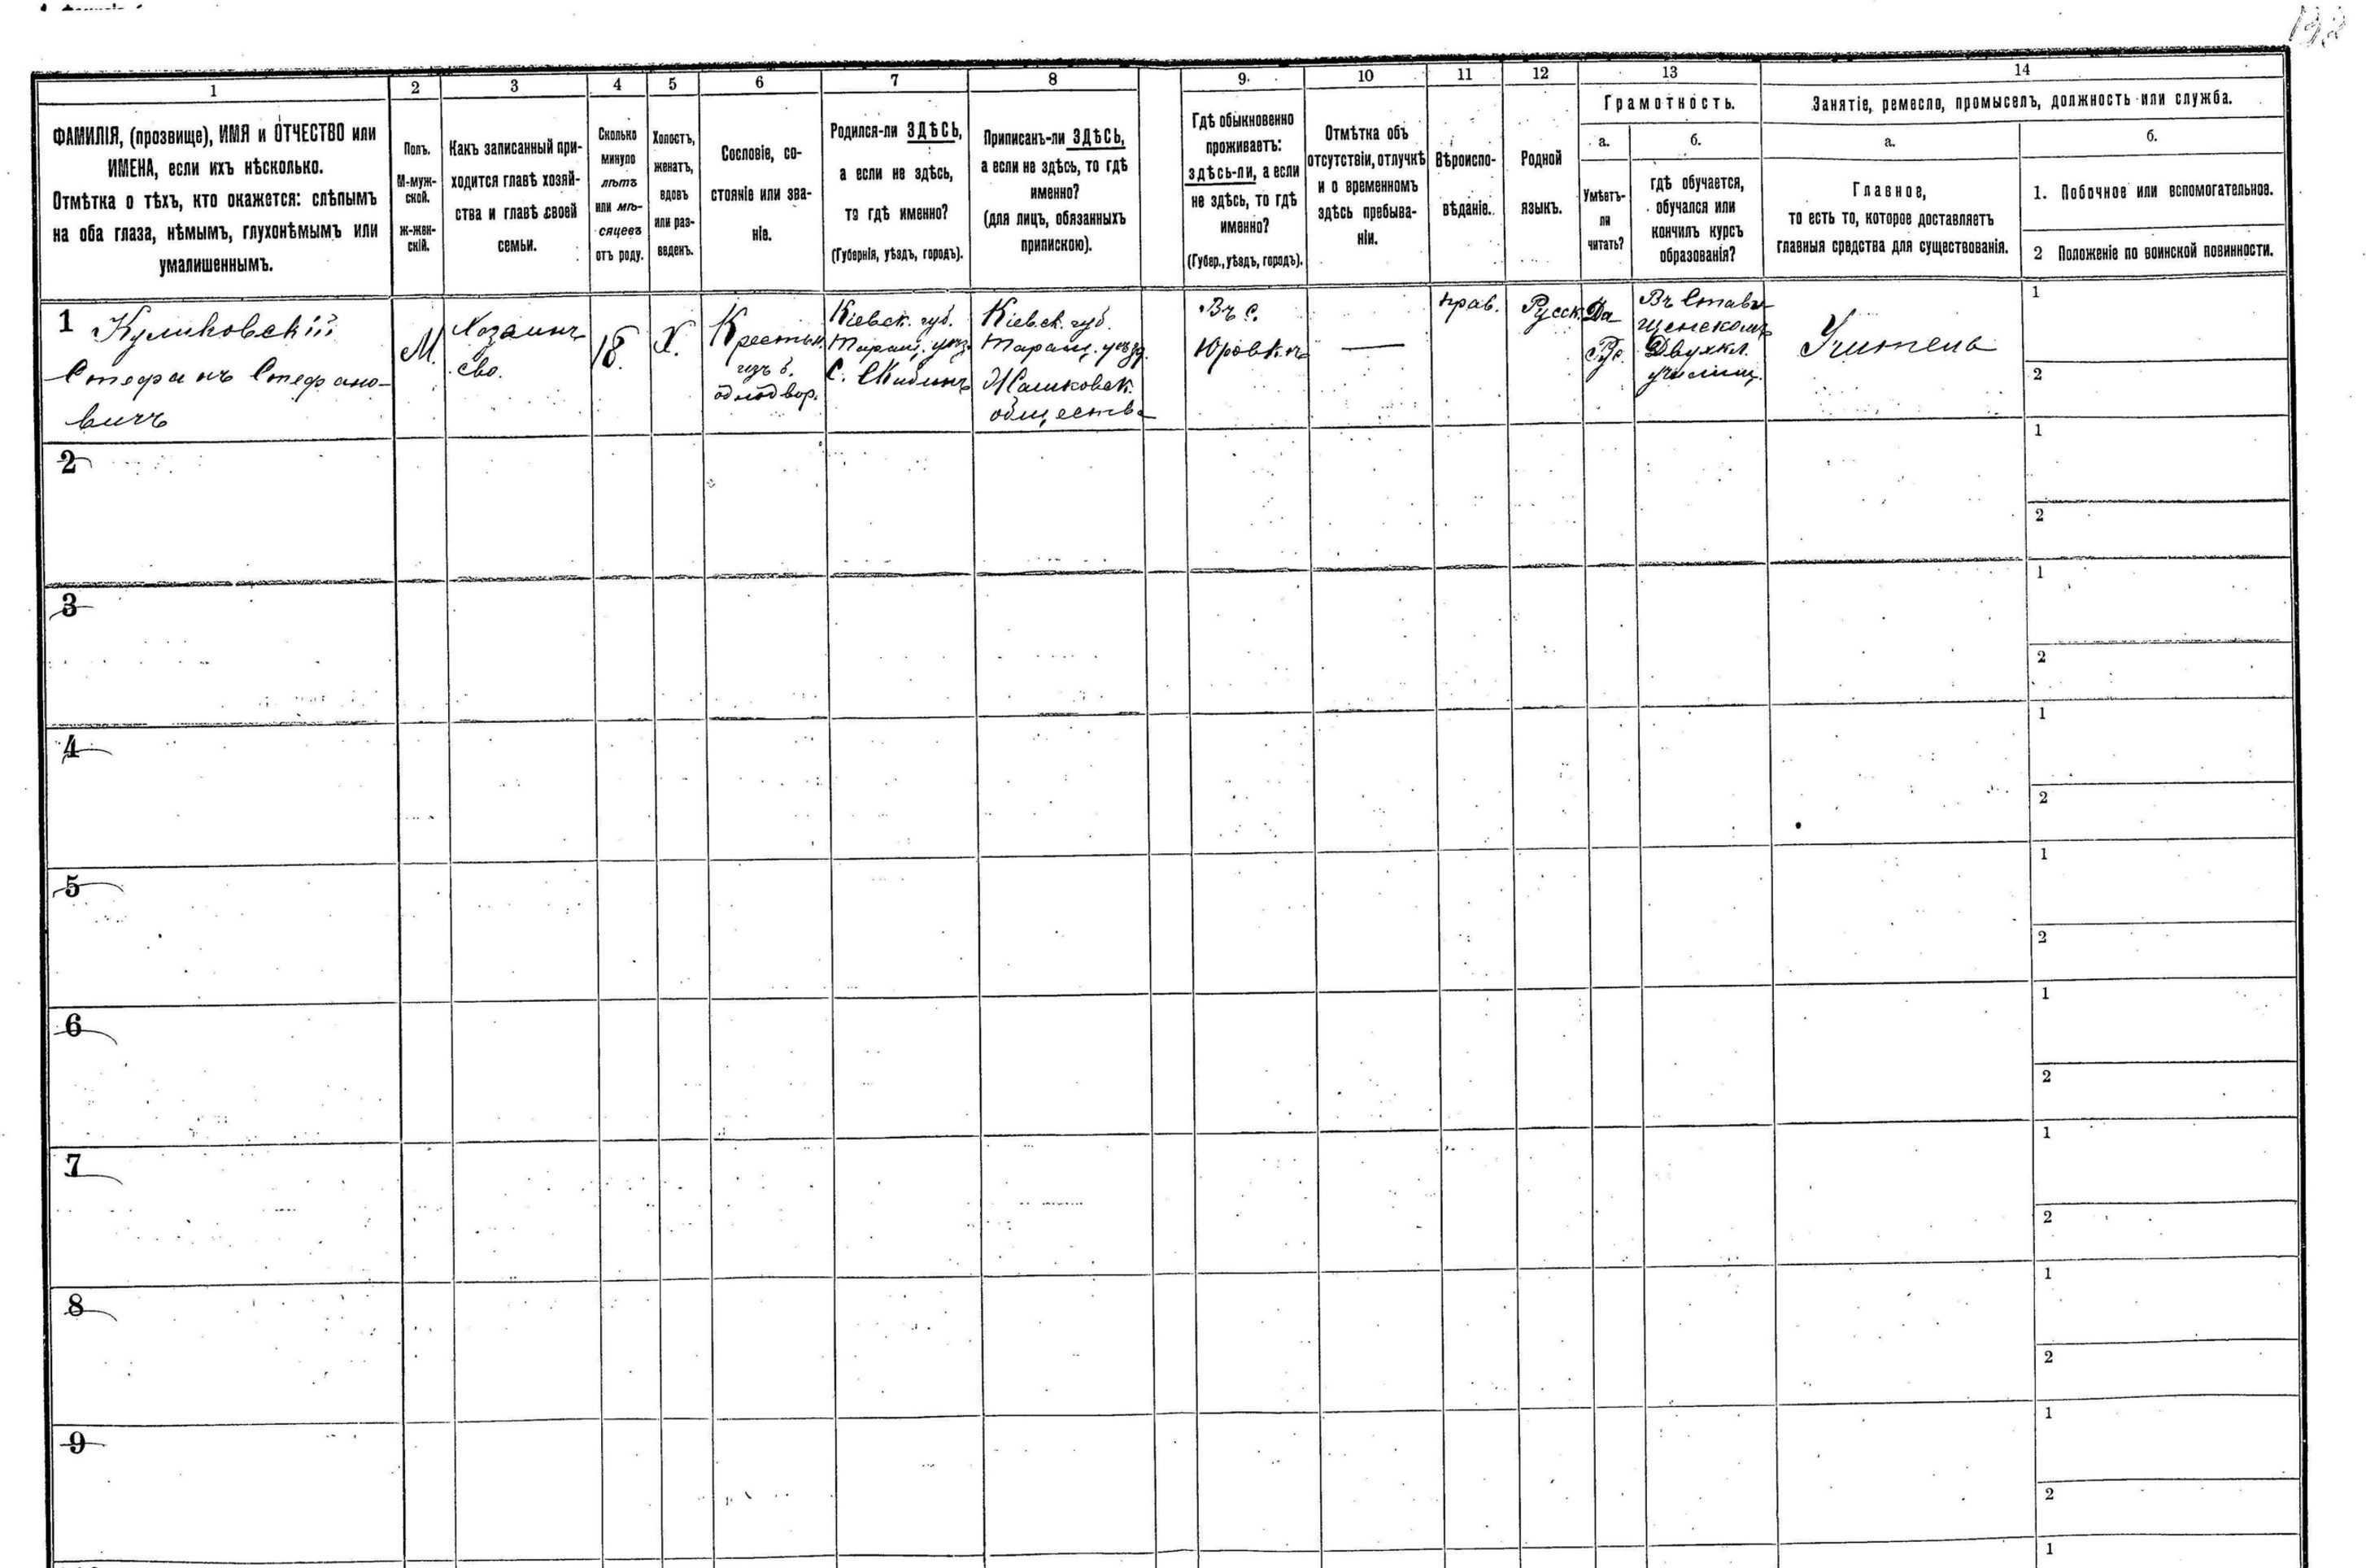 192
1
2
3
4
5
6
7
8
9.
10
11
12
13
14
ФАМИЛІЯ, (прозвище), ИМЯ и ОТЧЕСТВО или
ИМЕНА, если ихъ нѣсколько.
Отмѣтка о тѣхъ, кто окажется: слѣпымъ
на оба глаза, нѣмымъ, глухонѣмымъ или
умалишеннымъ.
Полъ.
М-муж-
ской.
ж-жен-
скій.
Какъ записанный при-
ходится главѣ хозяй-
ства и главѣ своей
семьи.
Сколько
минуло
лѣтъ
или мѣ-
сяцевъ
отъ роду.
Холостъ,
женатъ,
вдовъ
или раз-
веденъ.
Сословіе, со-
стояніе или зва-
ніе.
Родился-ли ЗДѢСЬ,
а если не здѣсь,
то гдѣ именно?
(Губернія, уѣздъ, городъ).
Приписанъ-ли ЗДѢСЬ,
а если не здѣсь, то гдѣ
именно?
(для лицъ, обязанныхъ
припискою).
Гдѣ обыкновенно
проживаетъ:
здѣсь-ли, а если
не здѣсь, то гдѣ
именно?
(Губер., уѣздъ, городъ).
Отмѣтка объ
отсутствіи, отлучкѣ
и о временномъ
здѣсь пребыва-
ніи.
Вѣроиспо-
вѣданіе.
Родной
языкъ.
Грамотность.
а.
Умѣетъ-
ли
читать?
б.
гдѣ обучается,
обучался или
кончилъ курсъ
образованія?
Занятіе, ремесло, промыселъ, должность или служба.
а.
Главное,
то есть то, которое доставляетъ
главныя средства для существованія.
б.
1. Побочное или вспомогательное.
2 Положеніе по воинской повинности.
1 Куликовскій
Стефанъ Стефано-
вичъ
М.
Хозяинъ
сво.
18.
Х.
Крестьян.
изъ б.
однодвор.
Кіевск. губ.
Таращ. уѣз.
С. Скибинъ
Кіевск. губ.
Таращ. уѣзд.
Жашковск.
общества
Въ с.
Юровкѣ
—
прав.
Русск.
Да
Рус.
Въ Стави-
щенскомъ
Двухкл.
училищ.
Учитель
1
2
2
1
2
3
1
2
4
1
2
5
1
2
6
1
2
7
1
2
8
1
2
9
1
2
1